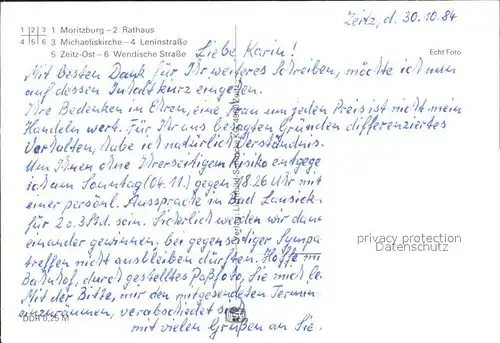 Zeitz, d. 30.10.84
1 2 3 1 Moritzburg – 2 Rathaus
4 5 6 3 Michaeliskirche – 4 Leninstraße
5 Zeitz-Ost – 6 Wendische Straße
Echt Foto
Liebe Karin!
Mit besten Dank für Ihr weiteres Schreiben, möchte ich nun
auf dessen Inhalt kurz eingehen.
Ihre Bedenken in Ehren, eine Frau um jeden Preis ist nicht mein
Handeln wert. Für Ihr aus besagten Gründen differenziertes
Verhalten, habe ich natürlich Verständnis.
Um Ihnen ohne Ihrerseitigem Risiko entgege
ich am Sonntag (04.11.) gegen 18.26 Uhr mit
einer persönl. Aussprache in Bad Lausick
für 2 o. 3 Std. sein. Sicherlich werden wir dann
einander gewinnen, bei gegenseitiger Sympa
treffen nicht ausbleiben dürften. Hoffe
Bahnhof, durch gestelltes Paßfoto, Sie mich
Mit der Bitte, mir den mitgesendeten Termin
einzuräumen, verabschiedet sich
mit vielen Grüßen an Sie.
DDR 0,25 M
privacy protection
Datenschutz